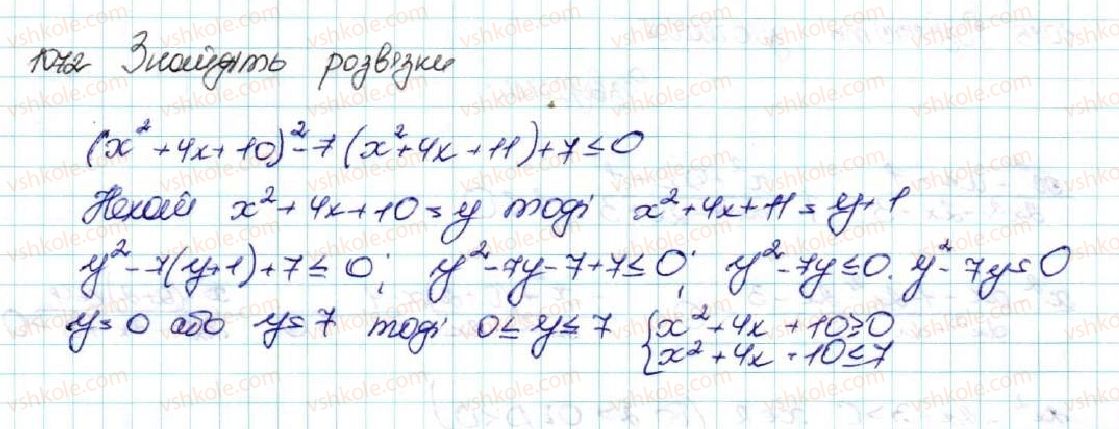 1072 Знайдіть розв'язки
(x² + 4x + 10)² - 7(x² + 4x + 11) + 7 ≤ 0
Нехай x² + 4x + 10 = y тоді x² + 4x + 11 = y + 1
y² - 7(y+1) + 7 ≤ 0; y² - 7y - 7 + 7 ≤ 0; y² - 7y ≤ 0. y² - 7y = 0
y = 0 або y = 7 тоді 0 ≤ y ≤ 7 { x² + 4x + 10 ≥ 0
x² + 4x + 10 ≤ 7
vshkole.com